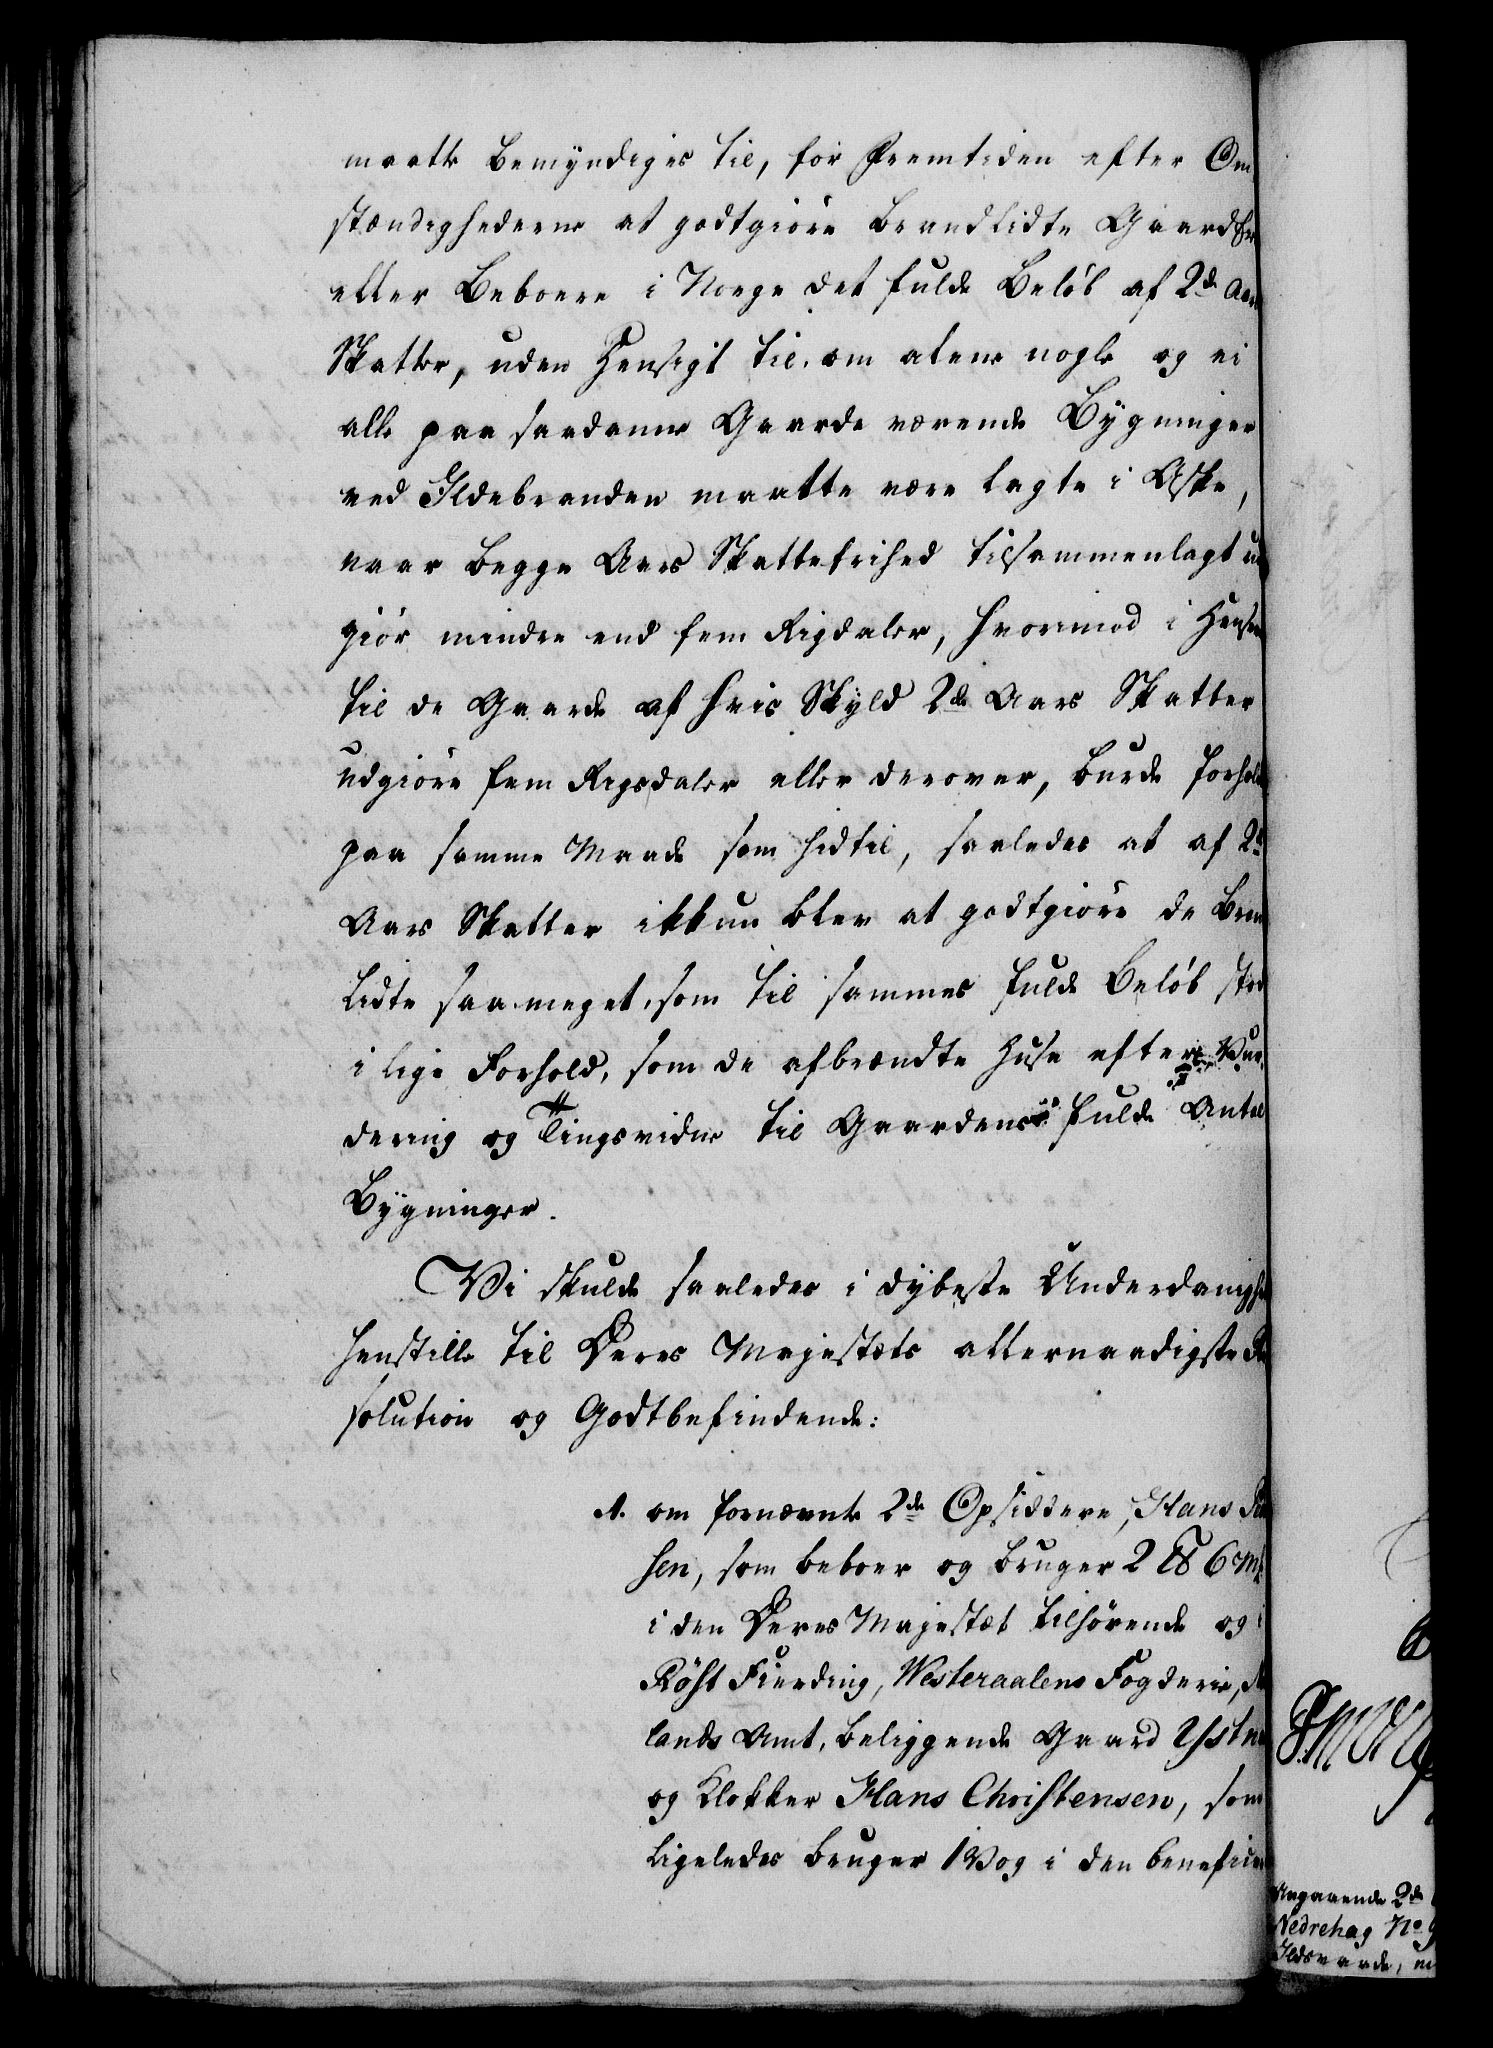 maatte bemyndiges til, for Fremtiden efter Om
stændighederne at godtgiøre brandlidte Gaard
eller Beboere i Norge det fulde Beløb af 2de Aars
Skatter, uden Hensigt til, om alene nogle og ei
alle paa saadanne Gaarde værende Bygninger
ved Ildebranden maatte være lagte i Aske,
naar begge Aars Skattefrihed tilsammenlagt ud
giør mindre end fem Rigdaler, hvorimod i Hensee
til de Gaarde af hvis Skyld 2de Aars Skatter
udgiøre fem Rigsdaler eller derover, burde forhol
paa samme Maade som hidtil, saaledes at af 2de
Aars Skatter ikkun blev at godtgiøre de Bran
lidte saameget, som til sammes fulde Beløb stod
i lige Forhold, som de afbrændte Huse efter Vur
dering og Tingsvidne til Gaardens fulde Antal
Bygninger.
Vi skulde saaledes i dybeste Underdanighe
henstille til Deres Majestæts allernaadigste Re
solution og Godtbefindende:
1. om fornævnte 2de Opsiddere, Hans
sen, som beboer og bruger 2 ℔ 6 Mk
i den Deres Majestæt tilhørende og i
Röst Fierding, Westeraalens Fogderie, No
lands Amt, beliggende Gaard Ystne
og Klokker Hans Christensen, som
ligeledes bruger 1 Vog i den beneficer
Angaaende 2de
Nedrehag No 9
Ildsvaade,